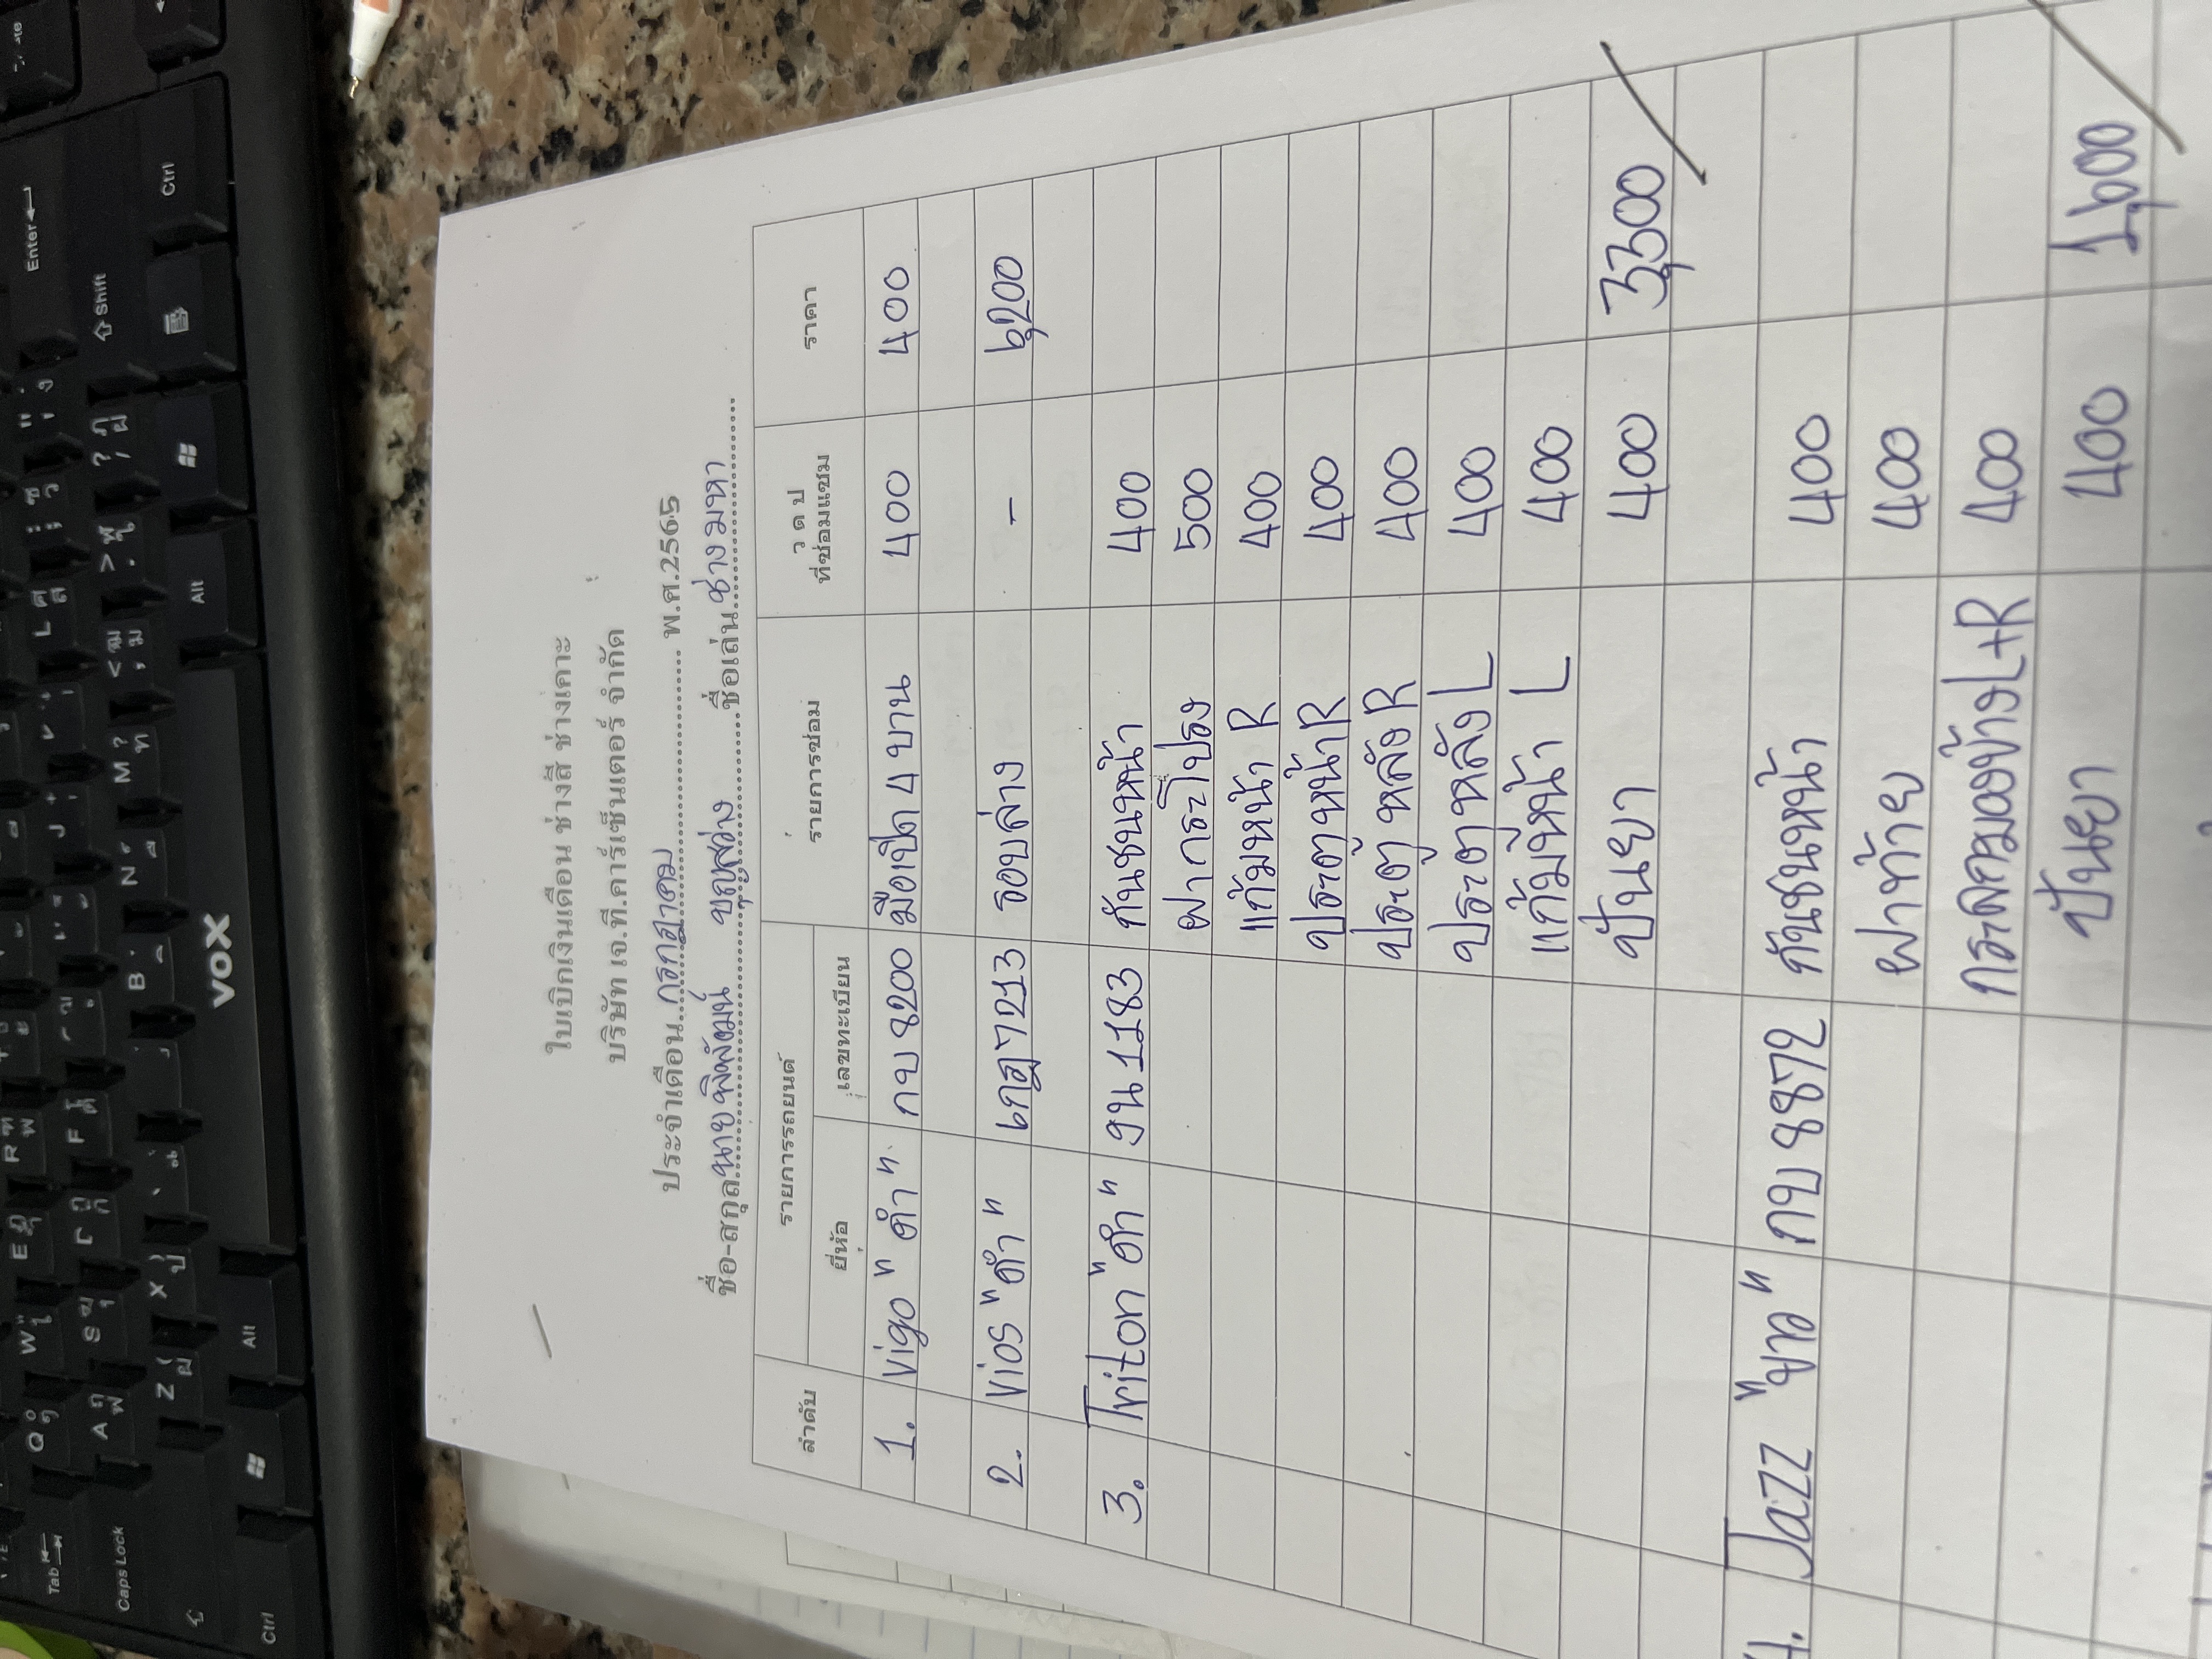 ใบเบิกเงินเดือน ช่างสี ช่างเคาะ
บริษัท เจ.ที.คาร์เซ็นเตอร์ จำกัด
ประจำเดือน กรกฎาคม พ.ศ.2565
ชื่อ-สกุล นายพิพัฒน์ บุญสว่าง ชื่อเล่น ช่างมหา
ลำดับ รายการรถยนต์ รายการซ่อม ว ด ป ที่ซ่อมแซม ราคา
ยี่ห้อ เลขทะเบียน
1. Vigo "ดำ" กบ 8200 มือเปิด 4 บาน 400 400
2. Vios "ดำ" 7213 รอบล่าง - 6,200
3. Triton "ดำ" งน 1183 กันชนหน้า 400
ฝากระโปรง 500
แก้มหน้า R 400
ประตูหน้า R 400
ประตูหลัง R 400
ประตูหลัง L 400
แก้มหน้า L 400
ปั่นยา 400 3,300
4. Jazz "ขาว" กบ 8872 กันชนหน้า 400
ฝาท้าย 400
กระจกมองข้าง L+R 400
ปั่นยา 400 1,600
VOX
Enter
Shift
Ctrl
Alt
Tab
Caps Lock